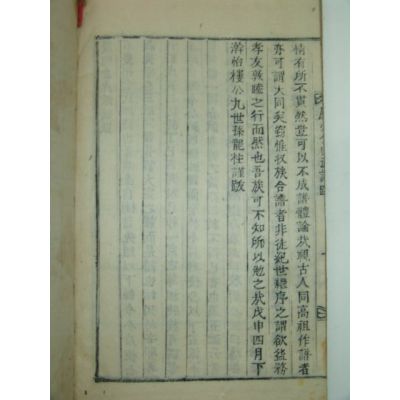 情有所不貫然豈可以不成譜體論哉觀古人同高祖作譜者
亦可謂大同矣竊惟收族合譜者非徒紀世繼序之謂欲益務
孝友敦睦之行而然也吾族可不知所以勉之哉戊申四月下
澣怡樓公九世孫龍柱謹跋